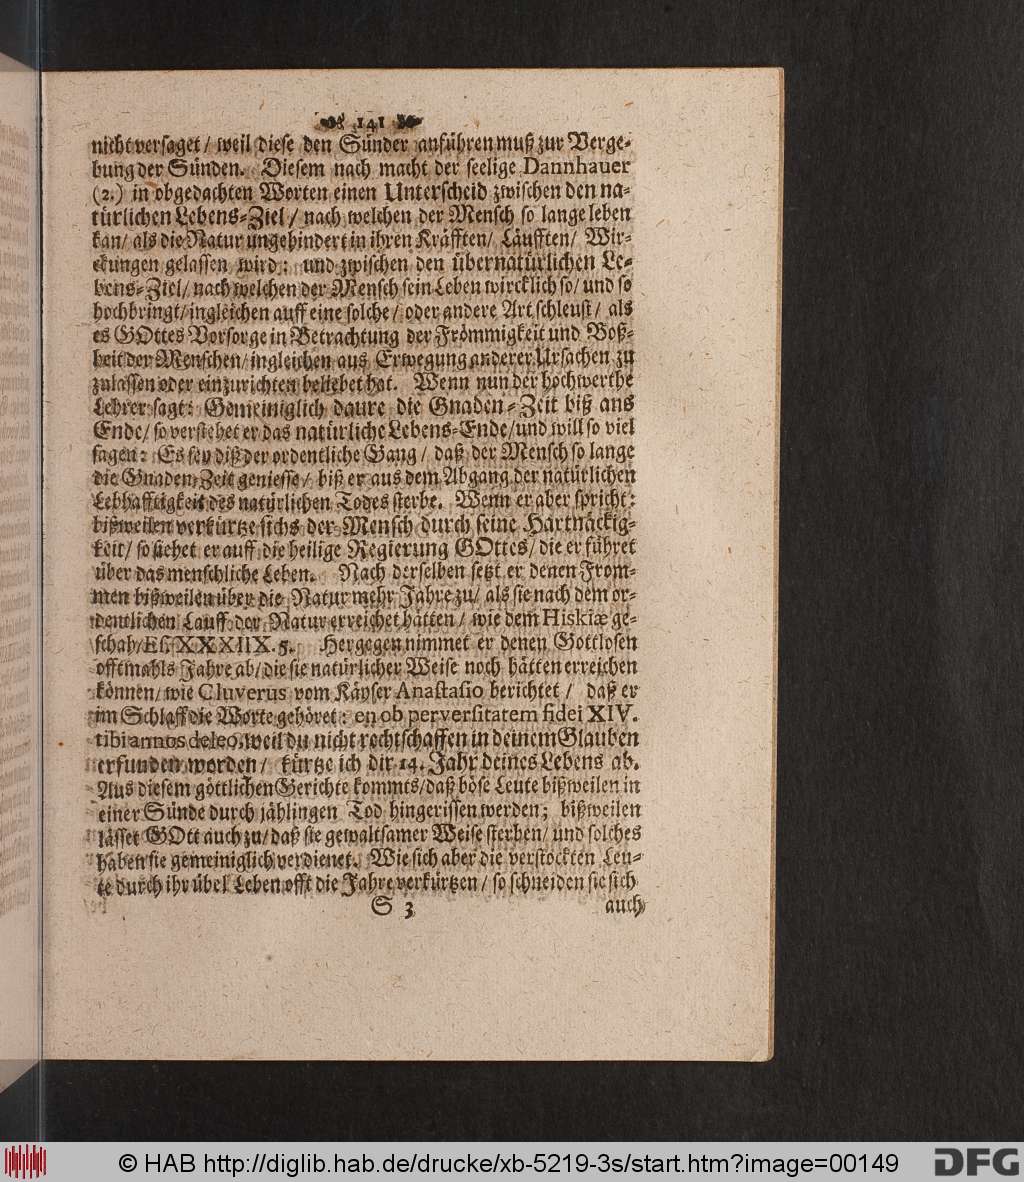 141
nicht versaget / weil diese den Sünder anführen muß zur Verge-
bung der Sünden. Diesem nach macht der seelige Dannhauer
(2.) in obgedachten Worten einen Unterscheid zwischen den na-
türlichen Lebens-Ziel / nach welchen der Mensch so lange leben
kan / als die Natur ungehindert in ihren Kräfften / Läufften / Wir-
ckungen gelassen wird: und zwischen den übernatürlichen Le-
bens-Ziel / nach welchen der Mensch sein Leben wircklich so / und so
hochbringt / ingleichen auff eine solche / oder andere Art schleust / als
es GOttes Vorsorge in Betrachtung der Frömmigkeit und Boß-
heit der Menschen / ingleichen aus Erwegung anderer Ursachen zu
zulassen oder einzurichten beliebet hat. Wenn nun der hochwerthe
Lehrer sagt: Gemeiniglich daure die Gnaden-Zeit biß ans
Ende / so verstehet er das natürliche Lebens-Ende / und will so viel
sagen: Es sey diß der ordentliche Gang / daß der Mensch so lange
die Gnaden-Zeit geniesse / biß er aus dem Abgang der natürlichen
Lebhafftigkeit des natürlichen Todes sterbe. Wenn er aber spricht:
bißweilen verkürtze sichs der Mensch durch seine Hartnäckig-
keit / so siehet er auff die heilige Regierung GOttes / die er führet
über das menschliche Leben. Nach derselben setzt er denen From-
men bißweilen über die Natur mehr Jahre zu / als sie nach dem or-
dentlichen Lauff der Natur erreichet hätten / wie dem Hiskiæ ge-
schah / Es. XXXIIX. 5. Hergegen nimmet er denen Gottlosen
offtmahls Jahre ab / die sie natürlicher Weise noch hätten erreichen
können / wie Cluverus vom Käyser Anastasio berichtet / daß er
im Schlaff die Worte gehöret: en ob perversitatem fidei XIV.
tibi annos deleo, weil du nicht rechtschaffen in deinem Glauben
erfunden worden / kürtze ich dir 14. Jahr deines Lebens ab.
Aus diesem göttlichen Gerichte kommts / daß böse Leute bißweilen in
einer Sünde durch jählingen Tod hingerissen werden; bißweilen
lässet GOtt auch zu / daß sie gewaltsamer Weise sterben / und solches
haben sie gemeiniglich verdienet. Wie sich aber die verstockten Leu-
te durch ihr übel Leben offt die Jahre verkürtzen / so schneiden sie sich
S 3 auch
© HAB http://diglib.hab.de/drucke/xb-5219-3s/start.htm?image=00149 DFG